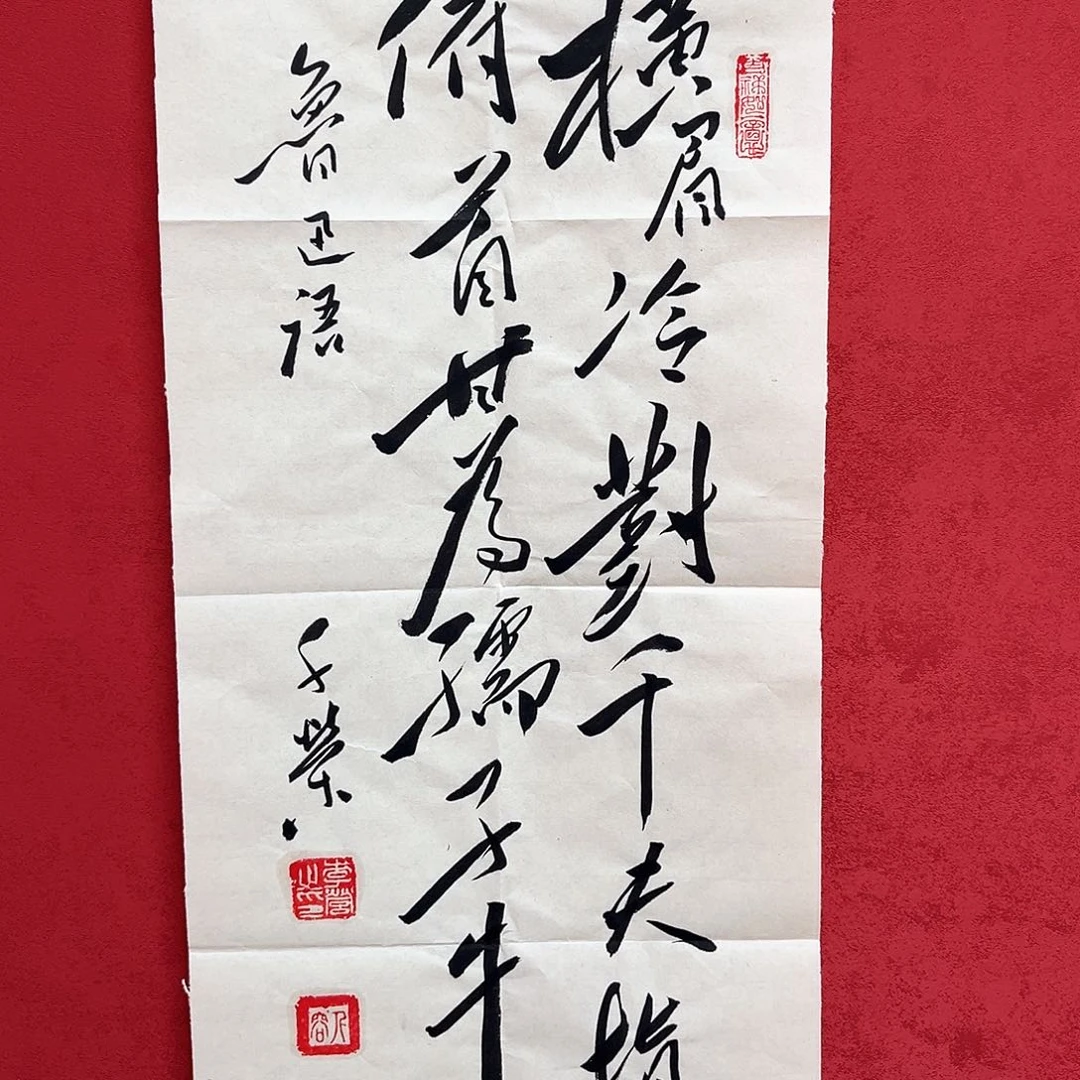 橫眉冷對千夫指
俯首甘為孺子牛
魯迅語